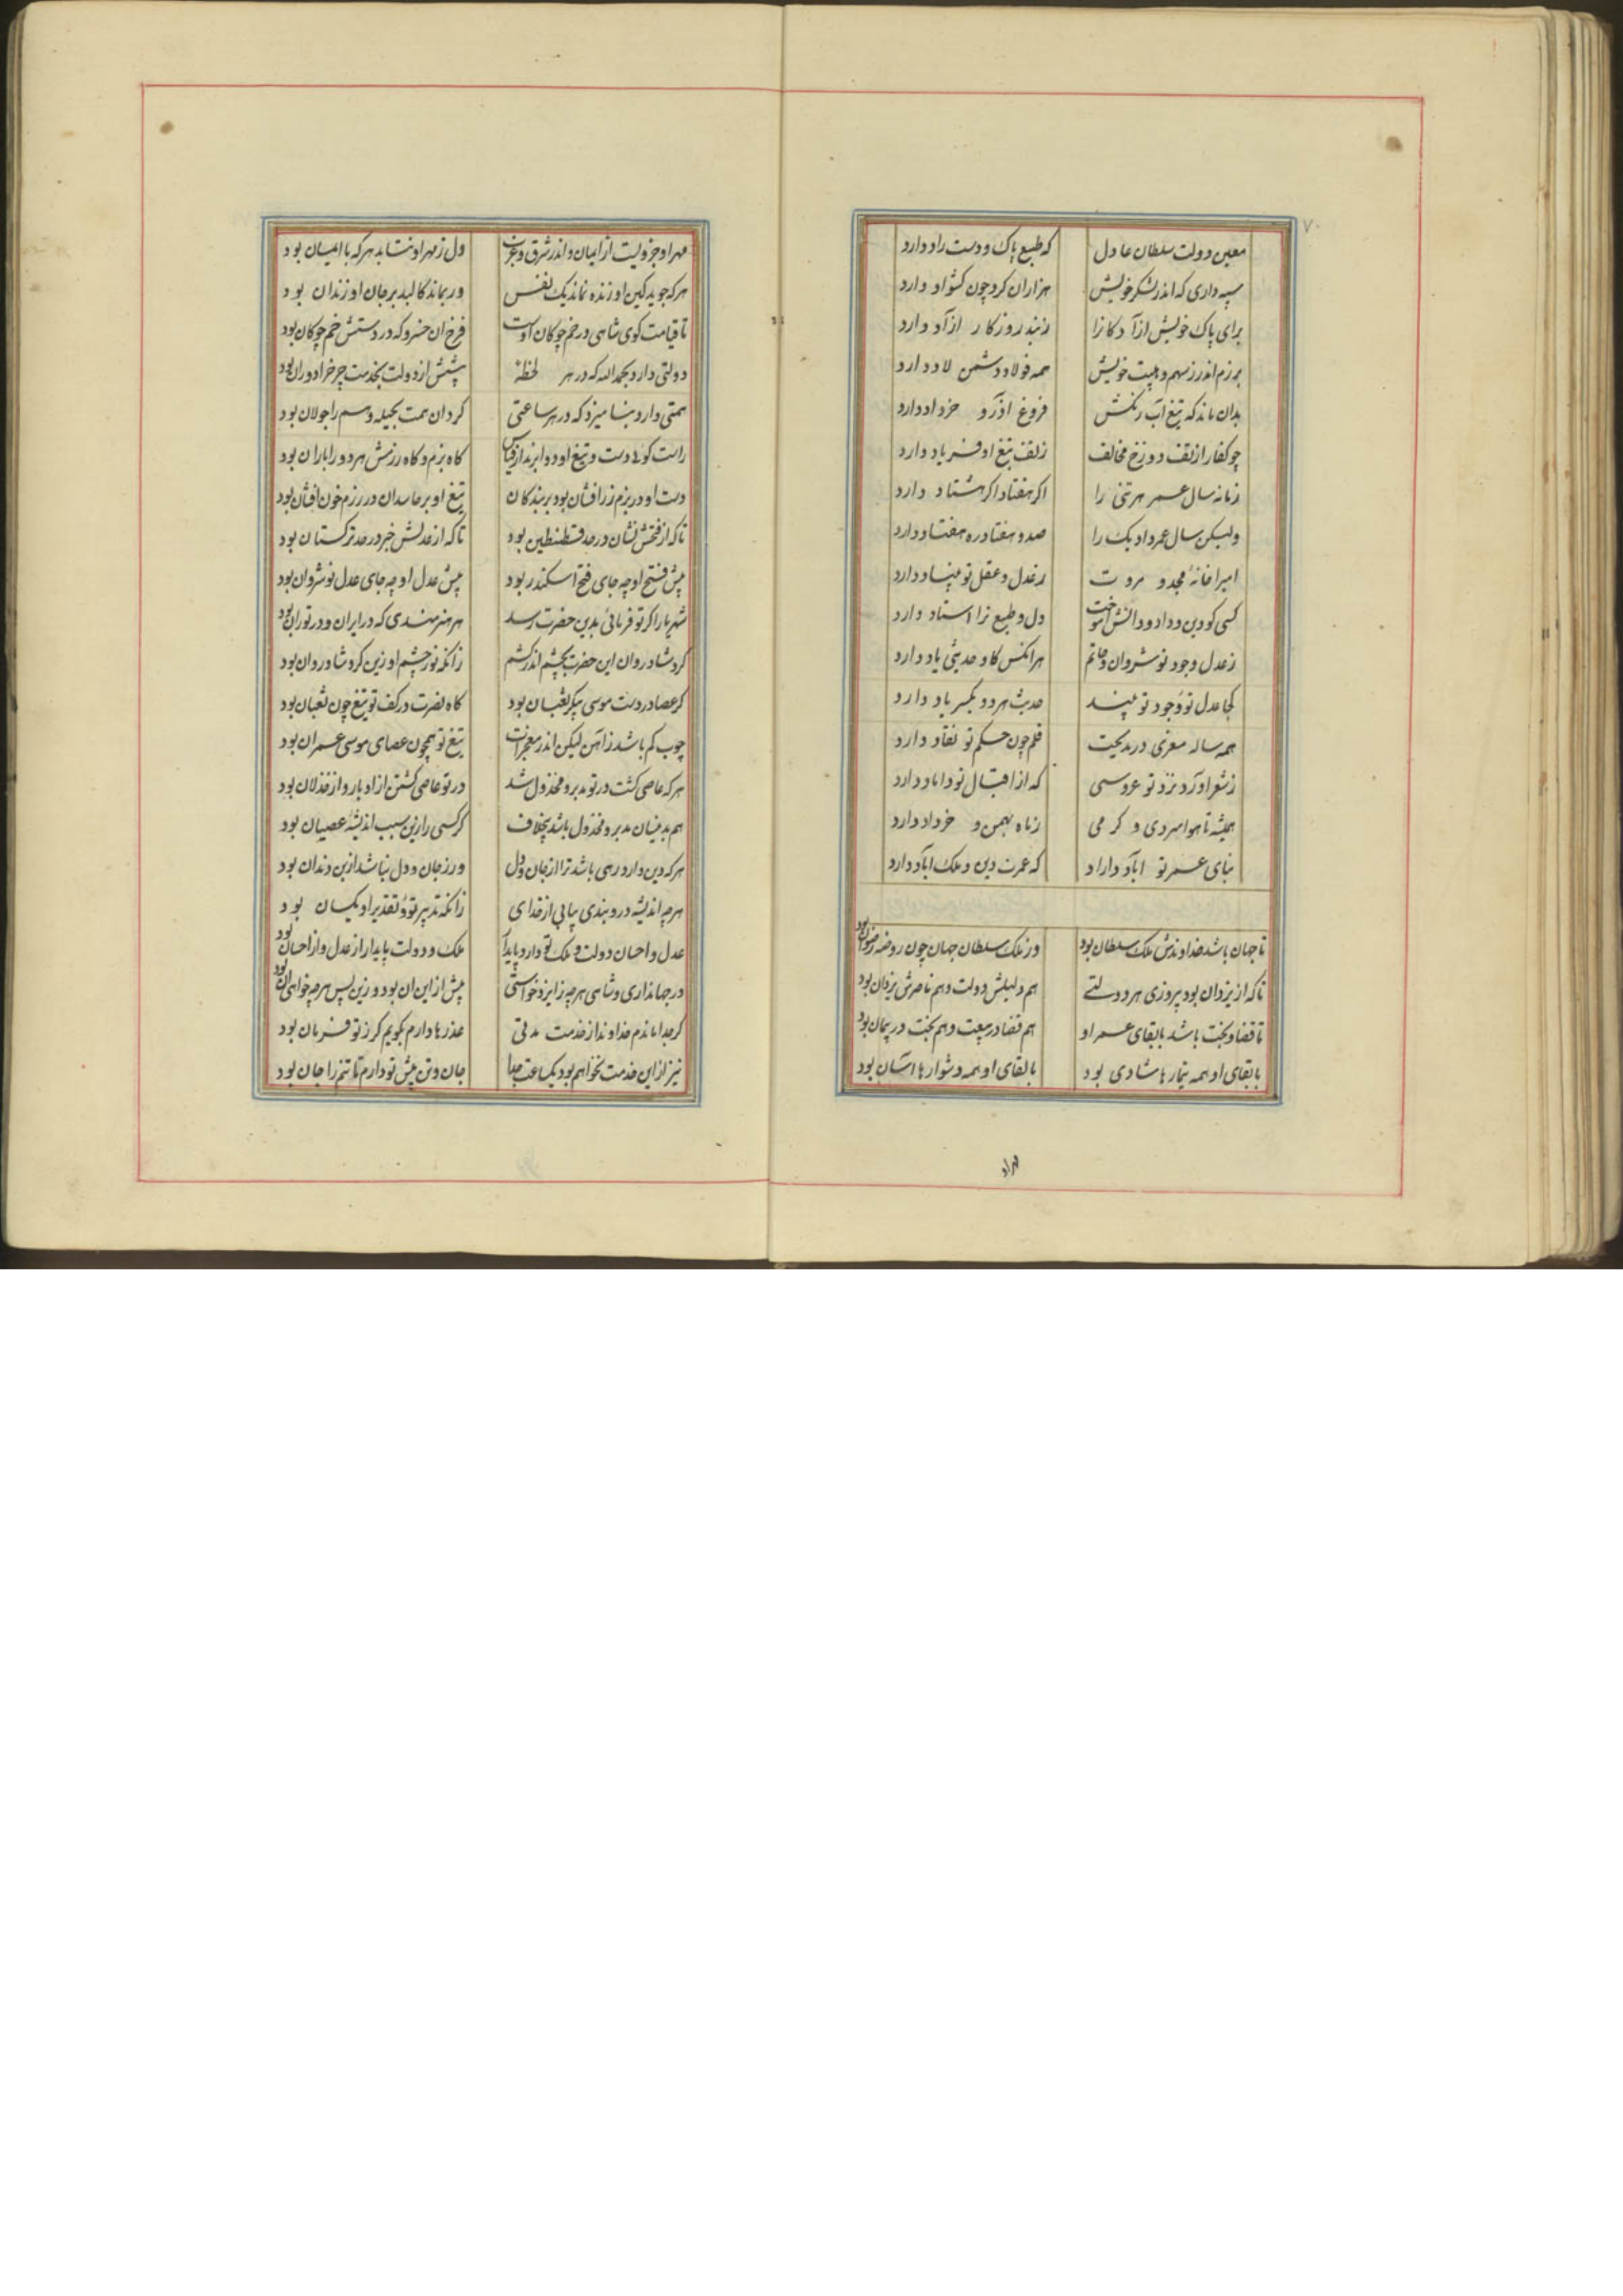 ۷۰
معین دولت سلطان عادل که طبع پاک و دست راد دارد
سپه داری که اندر لشکر خویش هزاران کرد چون کشواد دارد
برای پاک خویش ازآدکانرا زبند روزکار ازآد دارد
برزم اندر ز سهم و هیبت خویش همه فولاد دشمن لاد دارد
بدان ماند که تیغ آب رنکش فروغ اذر و خرداد دارد
چو کفار از تف دوزخ مخالف ز تف تیغ او فریاد دارد
زمانه سال عمر هر تنی را اکر هفتاد اکر هشتاد دارد
ولیکن سال عمر داد بک را صد و هفتاد ره هفتاد دارد
امیرا خانهٔ مجد و مروت ز عدل و عقل تو بنیاد دارد
کسی کو دین و داد و دانش آموخت دل و طبع ترا استاد دارد
ز عدل وجود نوشروان و حاتم هرانکس کاو حدیثی یاد دارد
کجا عدل تو وجود تو بیند حدیث هر دو یکسر باد دارد
همه ساله معزی در مدیحت قلم چون حکم تو نفاد دارد
ز شعر اورد نزد تو عروسی که از اقبال تو داماد دارد
همیشه تا هوا سردی و کرمی ز ماه بهمن و خرداد دارد
بنای عمر تو اباد داراد که عمرت دین و ملک اباد دارد
تا جهان باشد خداوندش ملک سلطان بود وز ملک سلطان جهان چون روضه رضوان بود
تا که از یزدان بود پیروزی هر دولتی هم دلیلش دولت و هم ناصرش یزدان بود
تا قضا و بخت باشد با بقای عمر او هم قضا در بیعت و هم بخت در پیمان بود
با بقای او همه تیمارها شادی بود با لقای او همه دشوارها اسان بود
مهر او جزویست از ایمان و اندر شرق و غرب دل ز مهر او نتابد هر که با ایمان بود
هر که جوید کین او زنده نماند یک نفس ور بماند کالبد بر جان او زندان بود
تا قیامت کوی شاهی در خم چوکان اوست فرخ ان خسرو که در دستش خم چوکان بود
دولتی دارد بحمدالله که در هر لحظهٔ پیشش از دولت بخدمت چرخ را دوران بود
همتی دارد بنامیزد که در هر ساعتی کرد ان همت بحیله وهم را جولان بود
راست کوئی دست و تیغ او دو ابرند از قیاس کاه بزم و کاه رزمش هر دو را باران بود
دست او در بزم زرافشان بود بر بندکان تیغ او بر حاسدان در رزم خون افشان بود
تا که از فتحش نشان در حد قسطنطین بود تا که از عدلش خبر در حد ترکستان بود
پیش فتح او چه جای فتح اسکندر بود پیش عدل او چه جای عدل نوشروان بود
شهریارا کر تو فرمائی بدین حضرت رسد هر هنرمندی که در ایران و در توران بود
کرد شادروان این حضرت بچشم اندر کشم زانکه نور چشم او زین کرد شادروان بود
کر عصا در دست موسی پیکر ثعبان بود کاه نصرت در کف تو تیغ چون ثعبان بود
چوب کم باشد ز اهن لیکن اندر معجزات تیغ تو همچون عصای موسی عمران بود
هر که عاصی کشت در تو مدبر و مخذول شد در تو عاصی کشتن از ادبار و از خذلان بود
هم بدنیان مدبر و مخذول باشد بیخلاف کر کسی را زین سبب اندیشهٔ عصیان بود
هر که دین دارد رهی باشد ترا از جان و دل ور ز جان و دل نباشد از بن دندان بود
هر چه اندیشه درو بندی بیابی از خدای زانکه تدبیر تو و تقدیر او یکسان بود
عدل و احسان دولت و ملک تو دارد پایدار ملک و دولت پایدار از عدل و از احسان بود
در جهانداری و شاهی هر چه از ایزد خواستی پیش از این ان بود و زین پس هر چه خواهی ان بود
کر جدا ماندم خداوندا ز خدمت مدتی عذرها دارم بکویم کر ز تو فرمان بود
نیز از این خدمت نخواهم بود یکساعت جدا جان و تن پیش تو دارم تا تنم را جان بود